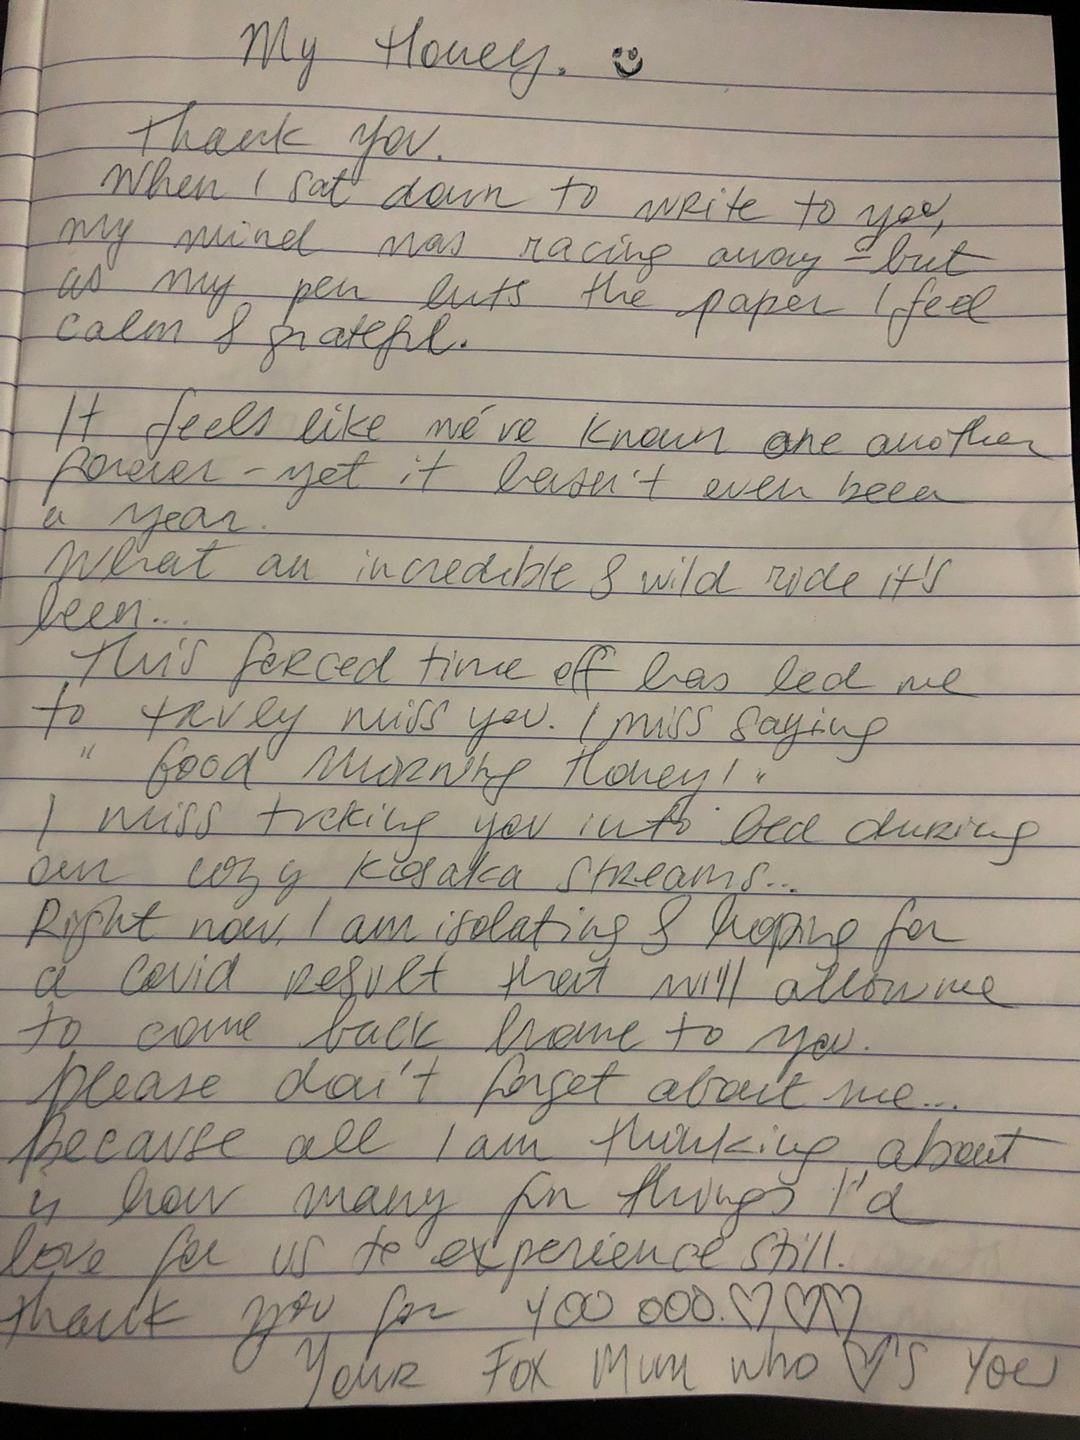 My Honey. ☺
Thank you.
When I sat down to write to you,
my mind was racing away - but
as my pen hits the paper I feel
calm & grateful.
It feels like we've known one another
forever - yet it hasn't even been
a year.
What an incredible & wild ride it's
been...
This forced time off has led me
to truly miss you. I miss saying
" Good Morning Honey! "
I miss tucking you into bed during
our cozy Kosaka streams...
Right now, I am isolating & hoping for
a Covid result that will allow me
to come back home to you.
Please don't forget about me...
Because all I am thinking about
is how many fun things I'd
love for us to experience still.
Thank you for 400 000.♡♡♡
Your Fox Mum who ♡'s you